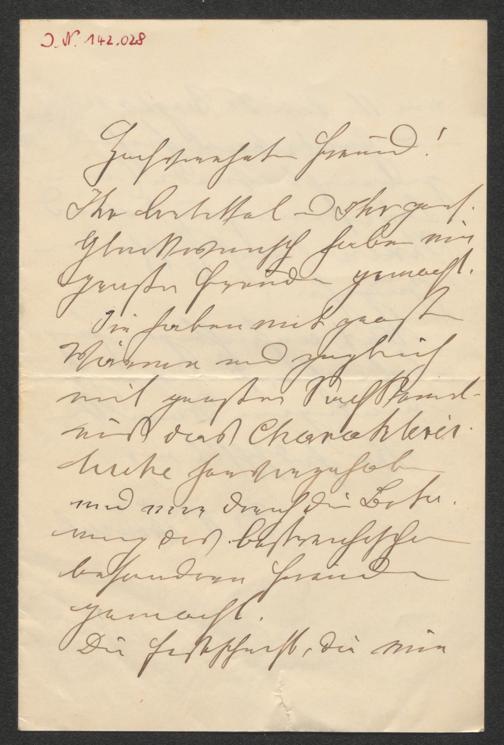 J. N. 142.028
Hochverehrter Freund!
Ihr Ihr
Glückwunsch haben mir
große Freude gemacht.
Sie haben mit großer
Wärme und zugleich
mit großer Sachkennt-
niß das Charakteris-
tische hervorgehoben
und mir durch die Beto-
nung des
besondere Freude
gemacht.
Die Festschrift, die mir